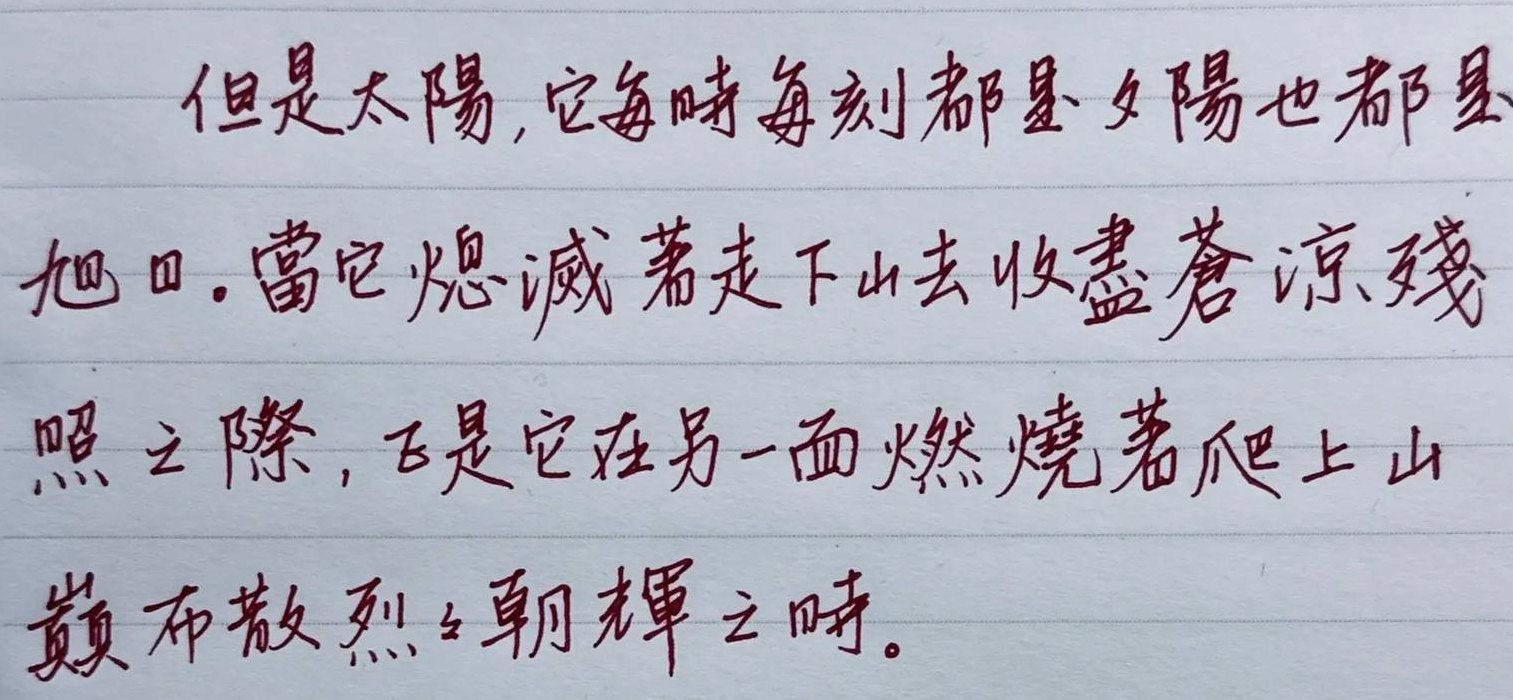 但是太陽,它每時每刻都是夕陽也都是
旭日。當它熄滅著走下山去收盡蒼涼殘
照之際,正是它在另一面燃燒著爬上山
巔布散烈々朝輝之時。